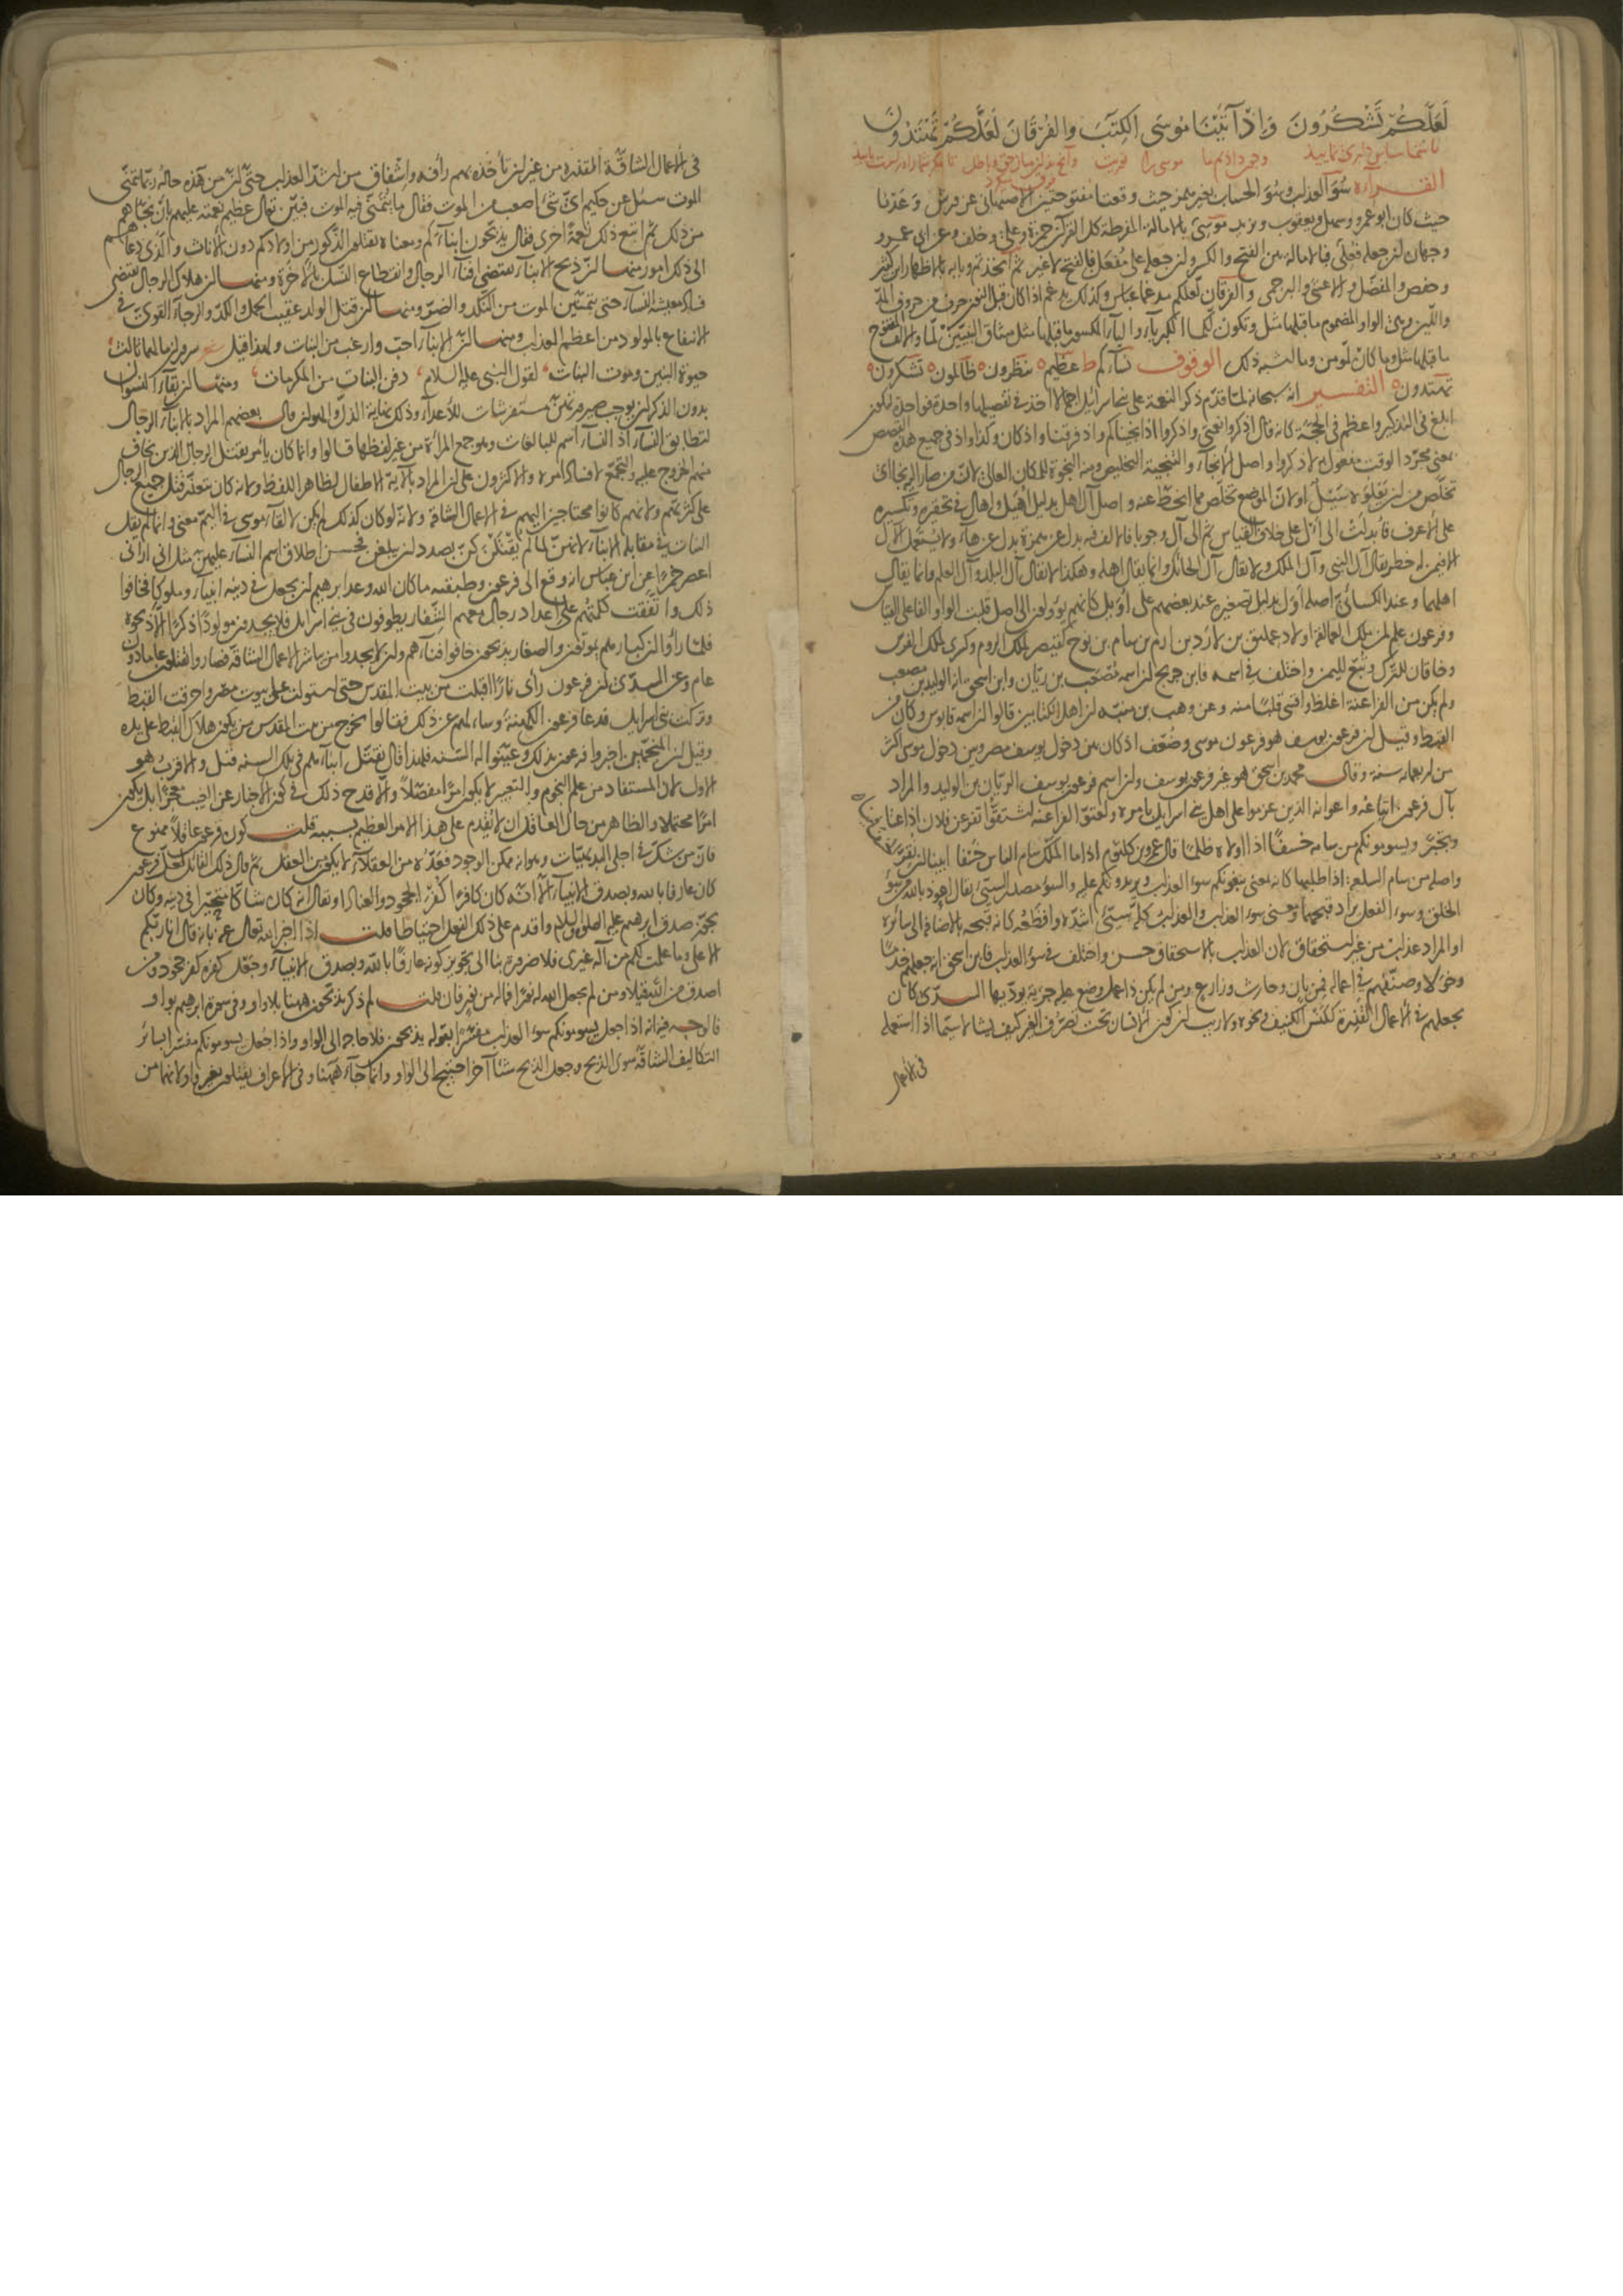 لَعَلَّكُمْ تَشْكُرُونَ وَإِذْ آتَيْنَا مُوسَى الْكِتَبَ وَالْفُرْقَانَ لَعَلَّكُمْ تَهْتَدُونَ
القراءة سُوءَ العذاب وسُوءَ الحساب بغير همز حيث وقعتا مفتوحتين الاصبهاني عن ورش وَعَدْنا
حيث كان ابو عمرو وسهل ويعقوب ويزيد موسى بالامالة المفرطة كل القرآن حمزة وعلي وخلف وعن ابي عمرو
وجهان لمن جعله فعلى فبالامالة بين الفتح والكسر ولمن جعله على مُفعَل فبالفتح لا غير ثم اتخذتم وبابه بالاظهار ابن كثير
وحفص والمفضل والاعشى والبرجمي والفرقان لعلكم مدغما عباس وكذلك يدغم اذا كان قبل النون حرف من حروف المدّ
واللين وهي الواو المضموم ما قبلها مثل وتكون لكما الكبرياء والياء المكسور ما قبلها مثل ميثاق النبيّين لَمّا والالف المفتوح
ما قبلها مثل وما كان لمؤمن وما اشبه ذلك الوقوف نساءكم ط عظيم ه تنظرون ه ظالمون ه تشكرون ه
تهتدون ه التفسير انه سبحانه لما قدّم ذكر النعمة على بني اسرائيل اجمالا اخذ في تفصيلها واحدة فواحدة ليكون
ابلغ في التذكير واعظم في الحجة كانه قال اذكروا نعمتي واذكروا اذ انجيناكم واذ فرقنا واذ كان وكذا واذ في جميع هذه القصص
بمعنى مجرّد الوقت مفعول به لاذكروا واصل الانجاء والتنجية التخليص ومنه النجوة للمكان العالي لانّ من صار اليه نجا اي
تخلّص من ان يعلوه سَيْل او لان الموضع تخلّص مما انحطّ عنه واصل آل اهل بدليل اُهَيل واهال في تحقيره وتكسيره
على الاعرف فأبدلت الى أأل على خلاف القياس ثم الى آل وجوبا فالالف فيه بدل عن همزة بدل عن هاء ولا يُستعمل الآل
الا فيمن له خطر يقال آل النبي وآل الملك ولا يقال آل الحائك وانما يقال اهله وهكذا لا يقال آل البلد وآل العلم وانما يقال
اهلهما وعند الكسائي اصله أَوَل بدليل تصغيره عند بعضهم على أُوَيل كانهم يؤولون الى اصل قلبت الواو الفا على القياس
وفرعون علم لمن ملك العمالقة اولاد عمليق بن لاوذ بن ارم بن سام بن نوح كقيصر لملك الروم وكسرى لملك الفرس
وخاقان للترك وتبّع لليمن واختلف في اسمه فابن جريج ان اسمه مُصعَب بن ريّان وابن اسحق انه الوليد بن مصعب
ولم يكن من الفراعنة اغلظ واقسى قلبًا منه وعن وهب بن منبّه ان اهل الكتابين قالوا ان اسمه قابوس وكان من
القبط وقيل ان فرعون يوسف هو فرعون موسى وضُعّف اذ كان بين دخول يوسف مصر وبين دخول موسى اكثر
من اربعمائة سنة وقال محمد بن اسحق هو غير فرعون يوسف وان اسم فرعون يوسف الريّان بن الوليد والمراد
بآل فرعون اتباعُه واعوانه الذين عزموا على اهلاك بني اسرائيل بامره ولعتوّ الفراعنة اشتقّوا تفرعن فلان اذا عتا
وتجبّر ويسومونكم من سامه خَسفًا اذا اولاه ظلمًا قال عمرو بن كلثوم اذا ما الملك سام الناس خَسفًا ابينا ان نُقِرّ
واصله من سام السلعة اذا طلبها كانه بمعنى يبغونكم سوء العذاب ويريدونكم عليه والسوء مصدر السيّئ يقال اعوذ بالله من سوء
الخلق وسوء الفعل يراد قبحهما ومعنى سوء العذاب والعذاب كلّه سيّئ اشدّه وافظعُه كانه قبحه بالاضافة الى سائره
او المراد عذاب من غير استحقاق لان العذاب بالاستحقاق حسن واختلف في سوء العذاب فابن اسحق انه جعلهم خدمًا
وخَوَلا وصنّفهم في اعماله فمن بانٍ وحارث وزارع ومن لم يكن ذا عمل وضع عليه جزية يودّيها السدّي كان
يجعلهم في الاعمال القذرة ككنس الكنيف ونحوه ولا ريب ان كون الانسان تحت تصرّف الغير كيف يشاء لا سيّما اذا استعمله
في الاعمال
في الاعمال الشاقّة القذرة من غير ان تأخذه بهم رأفة واشفاق من اشدّ العذاب حتّى ان من هذه حاله ربّما تمنّى
الموت سئل عن حكيم ايّ شيء اصعب من الموت فقال ما يُتمنّى فيه الموت فبيّن تعالى عظيم نعمته عليهم بان نجّاهم
من ذلك ثم اتبع ذلك نعمةً اخرى فقال يذبّحون ابناءكم ومعناه يقتلون الذكور من اولادكم دون الاناث والذي دعاهم
الى ذلك امور منها ان ذبح الابناء يقتضي افناء الرجال وانقطاع النسل بالاخرة ومنها ان هلاك الرجال يقتضي
فساد معيشة النساء حتى يتمنّين الموت من النكد والضرّ ومنها ان قتل الولد عقيب الحمل والكدّ والرجاء القويّ في
الانتفاع بالمولود من اعظم العذاب ومنها ان الابناء احبّ وارغب من البنات ولهذا قيل سروران ما لهما ثالث
حيوة البنين وموت البنات لقول النبي عليه السلام دفن البنات من المكرمات ومنها ان بقاء النسوان
بدون الذكران يوجب صيرورتهنّ مستفرشات للاعداء وذلك نهاية الذلّ والهوان قال بعضهم المراد بالابناء الرجال
لتطابق النساء اذ النساء اسم للبالغات وهو جمع المرأة من غير لفظها قالوا وانما كان يأمر بقتل الرجال الذين يخاف
منهم الخروج عليه والتجمّع لافساد امره والاكثرون على ان المراد بالآية الاطفال لظاهر اللفظ ولانه كان يتعذّر قتل جميع الرجال
على كثرتهم ولانهم كانوا محتاجين اليهم في الاعمال الشاقة ولانه لو كان كذلك لم يكن لالقاء موسى في اليمّ معنى وانما لم يقل
البنات في مقابلة الابناء لانهنّ لمّا لم يُقتلن كنّ بصدد ان يبلغن فحسن اطلاق اسم النساء عليهنّ مثل اني اراني
اعصر خمرًا عن ابن عباس انه وقع الى فرعون وطبقته ما كان الله وعد ابرهيم ان يجعل في ذريته انبياء وملوكا فخافوا
ذلك واتّفقت كلمتهم على اعداد رجال معهم الشفار يطوفون في بني اسرائيل فلا يجدون مولودًا ذكرًا الا ذبحوه
فلمّا رأوا ان كبارهم يموتون والصغار يذبحون خافوا فناءهم وان لا يجدوا من يباشر الاعمال الشاقة فصاروا يقتلون عاما دون
عام وعن السدّي ان فرعون رأى نارًا اقبلت من بيت المقدس حتى استولت على بيوت مصر واحرقت القبط
وتركت بني اسرائيل فدعا فرعون الكهنة وسألهم عن ذلك فقالوا يخرج من بيت المقدس من يكون هلاك القبط على يده
وقيل ان المنجّمين اخبروا فرعون بذلك وعيّنوا له السنة فلهذا قال يقتل ابناءهم في تلك السنة قيل والاقرب هو
الاول لان المستفاد من علم النجوم والتعبير لا يكون امرًا مفصّلًا والا قدح ذلك في كون الاخبار عن الغيب معجزًا بل يكون
امرًا مجملا والظاهر من حال العاقل ان لا يُقدم على هذا الامر العظيم بسببه قلت كون فرعون عاقلًا ممنوع
فانّ من شكّ في اجلى البديهيّات وهو انه ممكن الوجود فعَدّه من العقلاء لا يكون من العقل ثم قال ذلك القائل لعلّ فرعون
كان عارفا بالله وبصدق الانبياء الا انّه كان كافرًا كفر الجحود والعناد او يقال انه كان شاكّا متحيّرا في دينه وكان
يجوّز صدق ابرهيم عليه الصلوة والسلام واقدم على ذلك الفعل احتياطا قلت اذا اخبر الله تعالى عنه بانه قال انا ربّكم
الاعلى وما علمت لكم من اله غيري فلا ضرورة بنا الى تجويز كونه عارفًا بالله وبصدق الانبياء وجعل كفره كفر جحود ومن
اصدق من الله قيلا ومن لم يجعل الله له نورًا فما له من نور فان قلت لم ذكر يذبّحون ههنا بلا واو وفي سورة ابرهيم بواو
فالوجه فيه انه اذا جعل يسومونكم سوء العذاب مفسّرًا بقوله يذبحون فلا حاجة الى الواو واذا جُعل يسومونكم مفسّرا بسائر
التكاليف الشاقّة سوى الذبح وجعل الذبح شيئا آخر احتيج الى الواو وانما جاء ههنا وفي الاعراف يقتلون بغير واو لانهما من